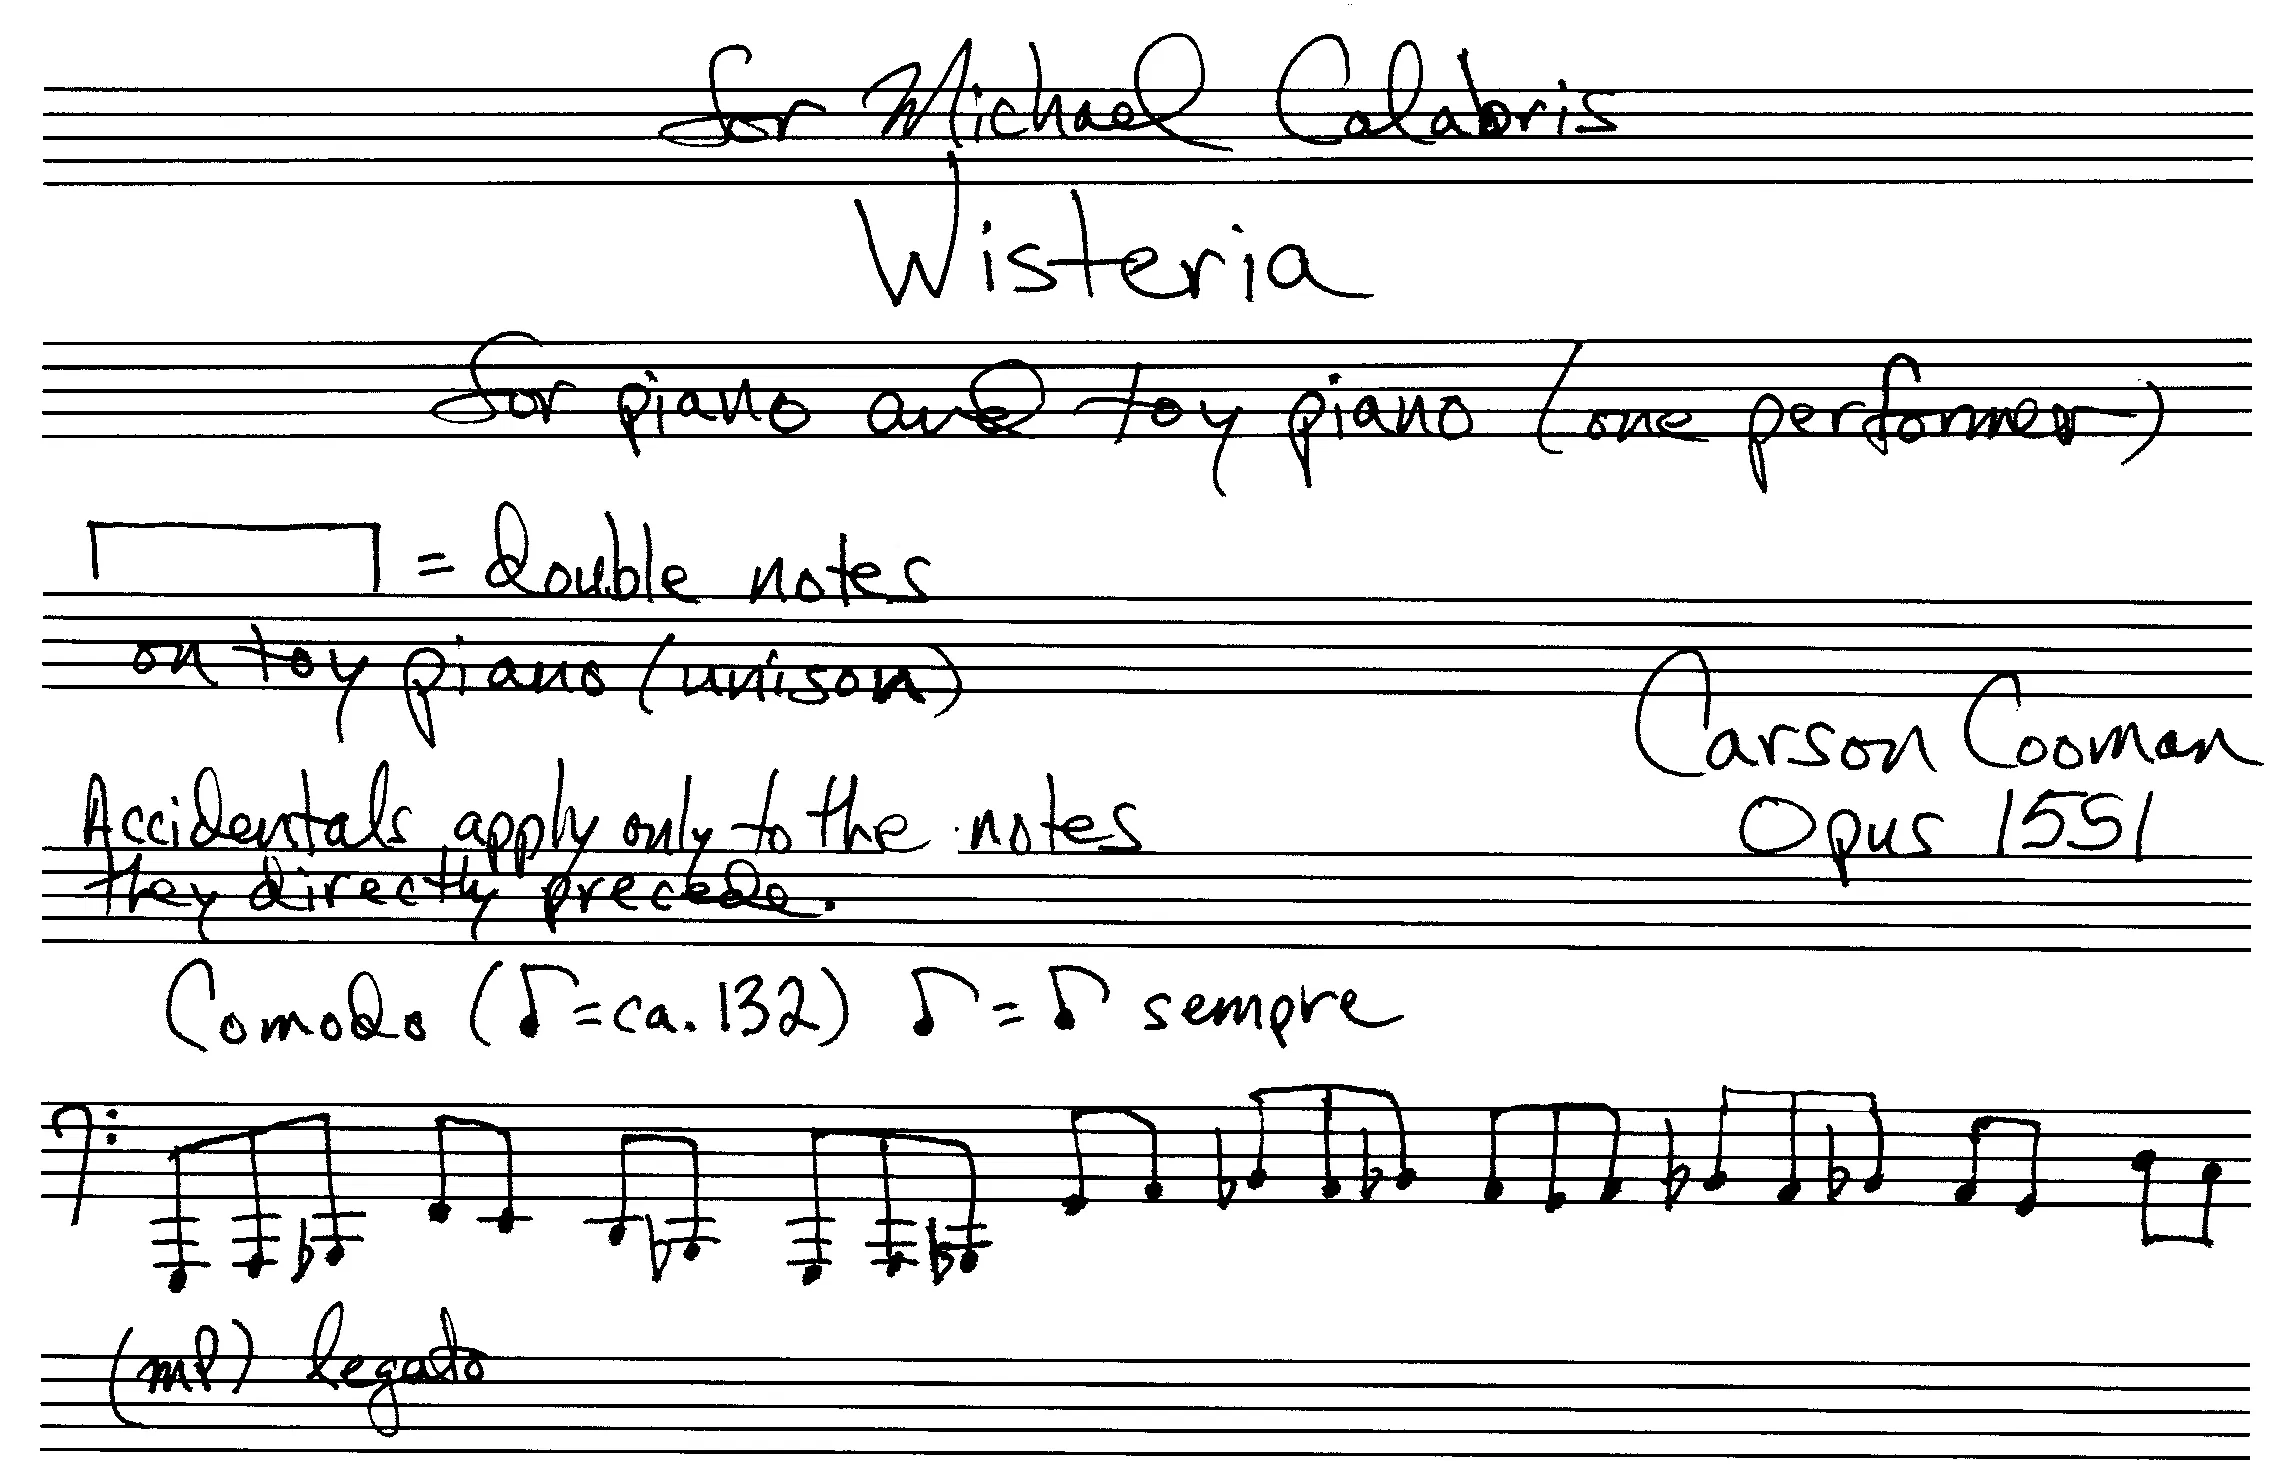 for Michael Calabris
Wisteria
for piano and toy piano (one performer)
= double notes
on toy piano (unison)
Carson Cooman
Opus 1551
Accidentals apply only to the notes
they directly precede.
Comodo (♪=ca. 132) ♪=♪ sempre
(mp) legato